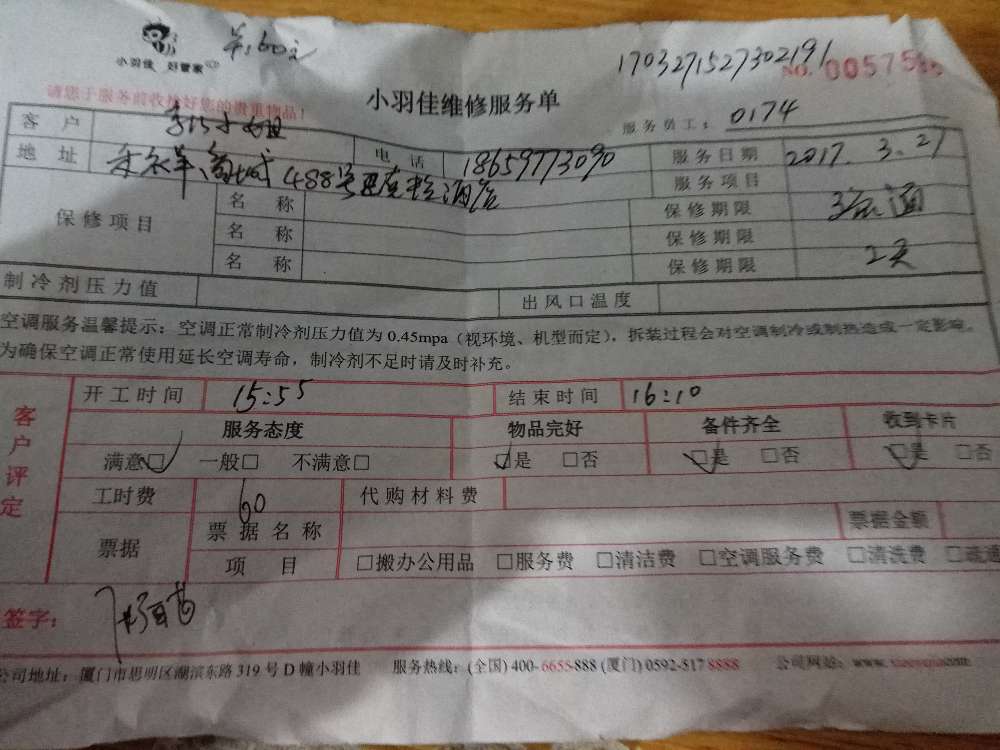 小羽佳 好管家
1703271527302191
NO. 00575
请您于服务前收拾好您的贵重物品！
小羽佳维修服务单
服务员工： 0174
客 户 小姐
地 址 488号 酒店
电 话 18659773090
服务日期 2017.3.27
服务项目 疏通
保修项目
名 称 保修期限
名 称 保修期限
名 称 保修期限 2天
制冷剂压力值 出风口温度
空调服务温馨提示：空调正常制冷剂压力值为 0.45mpa（视环境、机型而定），拆装过程会对空调制冷或制热造成一定影响。
为确保空调正常使用延长空调寿命，制冷剂不足时请及时补充。
客户评定
开工时间 15:55 结束时间 16:10
服务态度 物品完好 备件齐全 收到卡片
满意□ 一般□ 不满意□ □是 □否 □是 □否 □是 □否
工时费 60 代购材料费
票据 票据名称 票据金额
项 目 □搬办公用品 □服务费 □清洁费 □空调服务费 □清洗费 □疏通
签字：
公司地址：厦门市思明区湖滨东路 319 号 D 幢小羽佳 服务热线：(全国) 400-6655-888 (厦门) 0592-517 8888 公司网站：www.